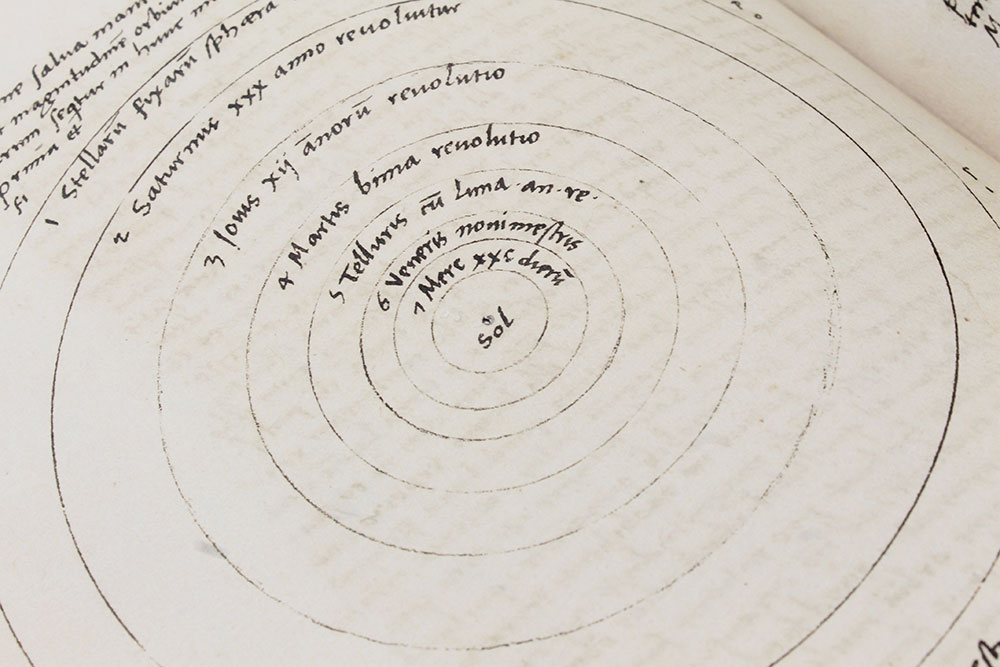 ne salua mani
t magnitudinē orbiu
orum seqtur in hunc m
prima et
fi
1 Stellarū fixarū sphæra
2 Saturnus xxx anno reuoluitur
3 Jouis xij anorū reuolutio
4 Martis bima reuolutio
5 Telluris cū Luna an·re·
6 Veneris nonimestris
7 Merc xxc dierū
Sol